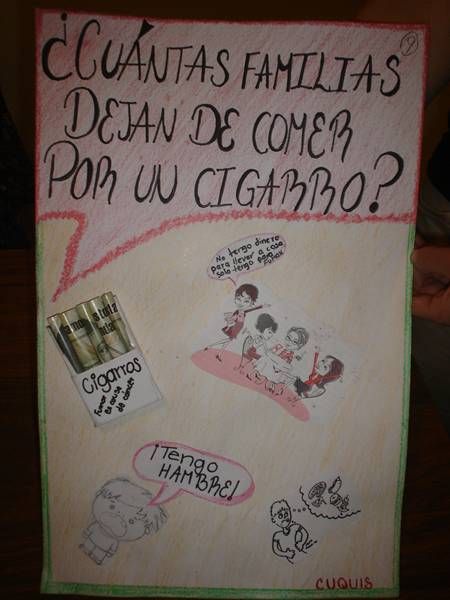 ¿CUÁNTAS FAMILIAS
DEJAN DE COMER
POR UN CIGARRO?
No tengo dinero
para llevar a casa
solo tengo para
fumar
Cigarros
Fumar
es causa
de cancer
¡Tengo
HAMBRE!
CUQUIS